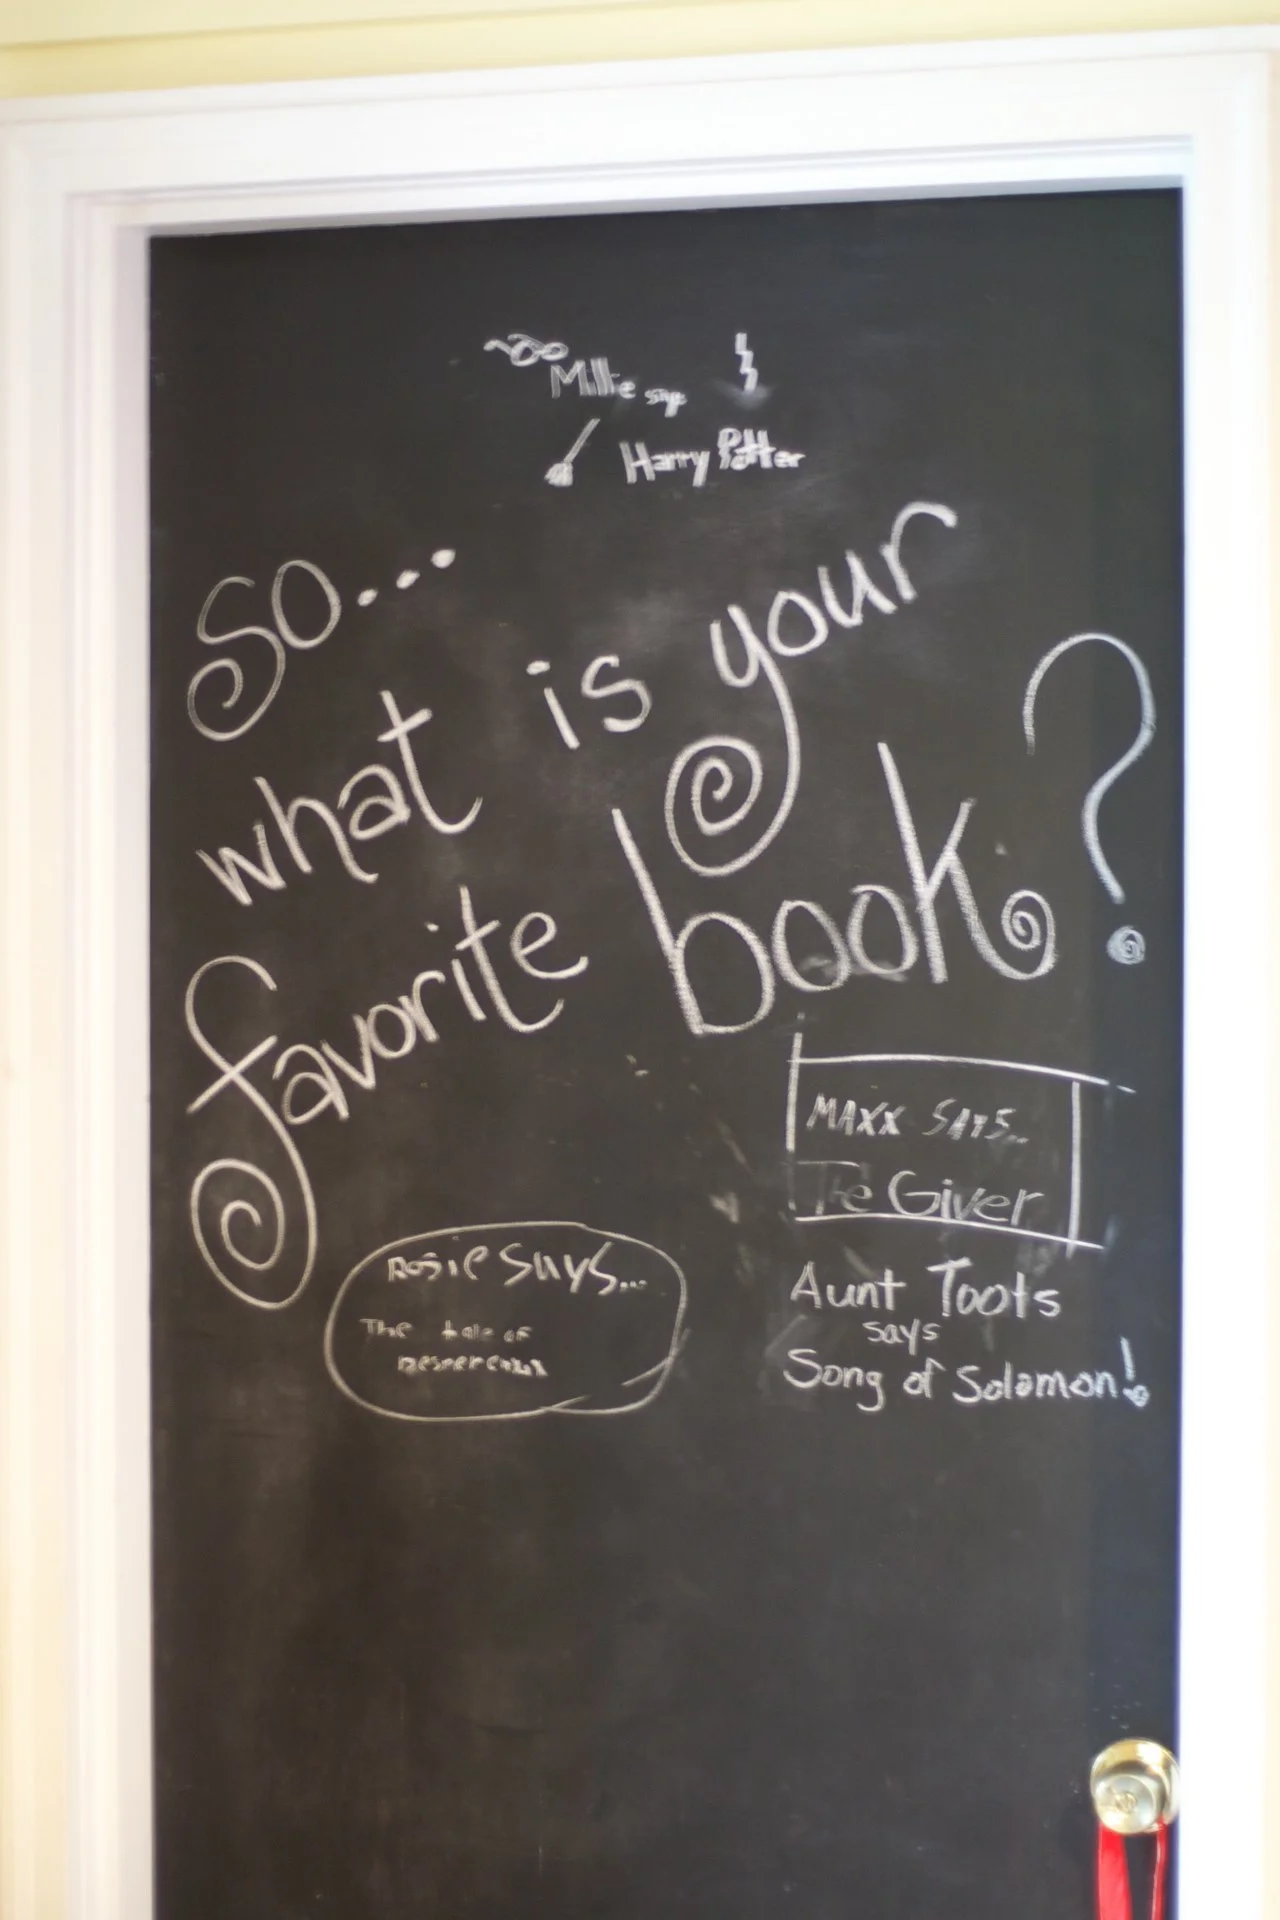 Millie says
Harry Potter
So...
what is your
favorite book?
MAXX SAYS..
The Giver
Rosie Says...
The tale of
Despereaux
Aunt Toots
says
Song of Solomon!